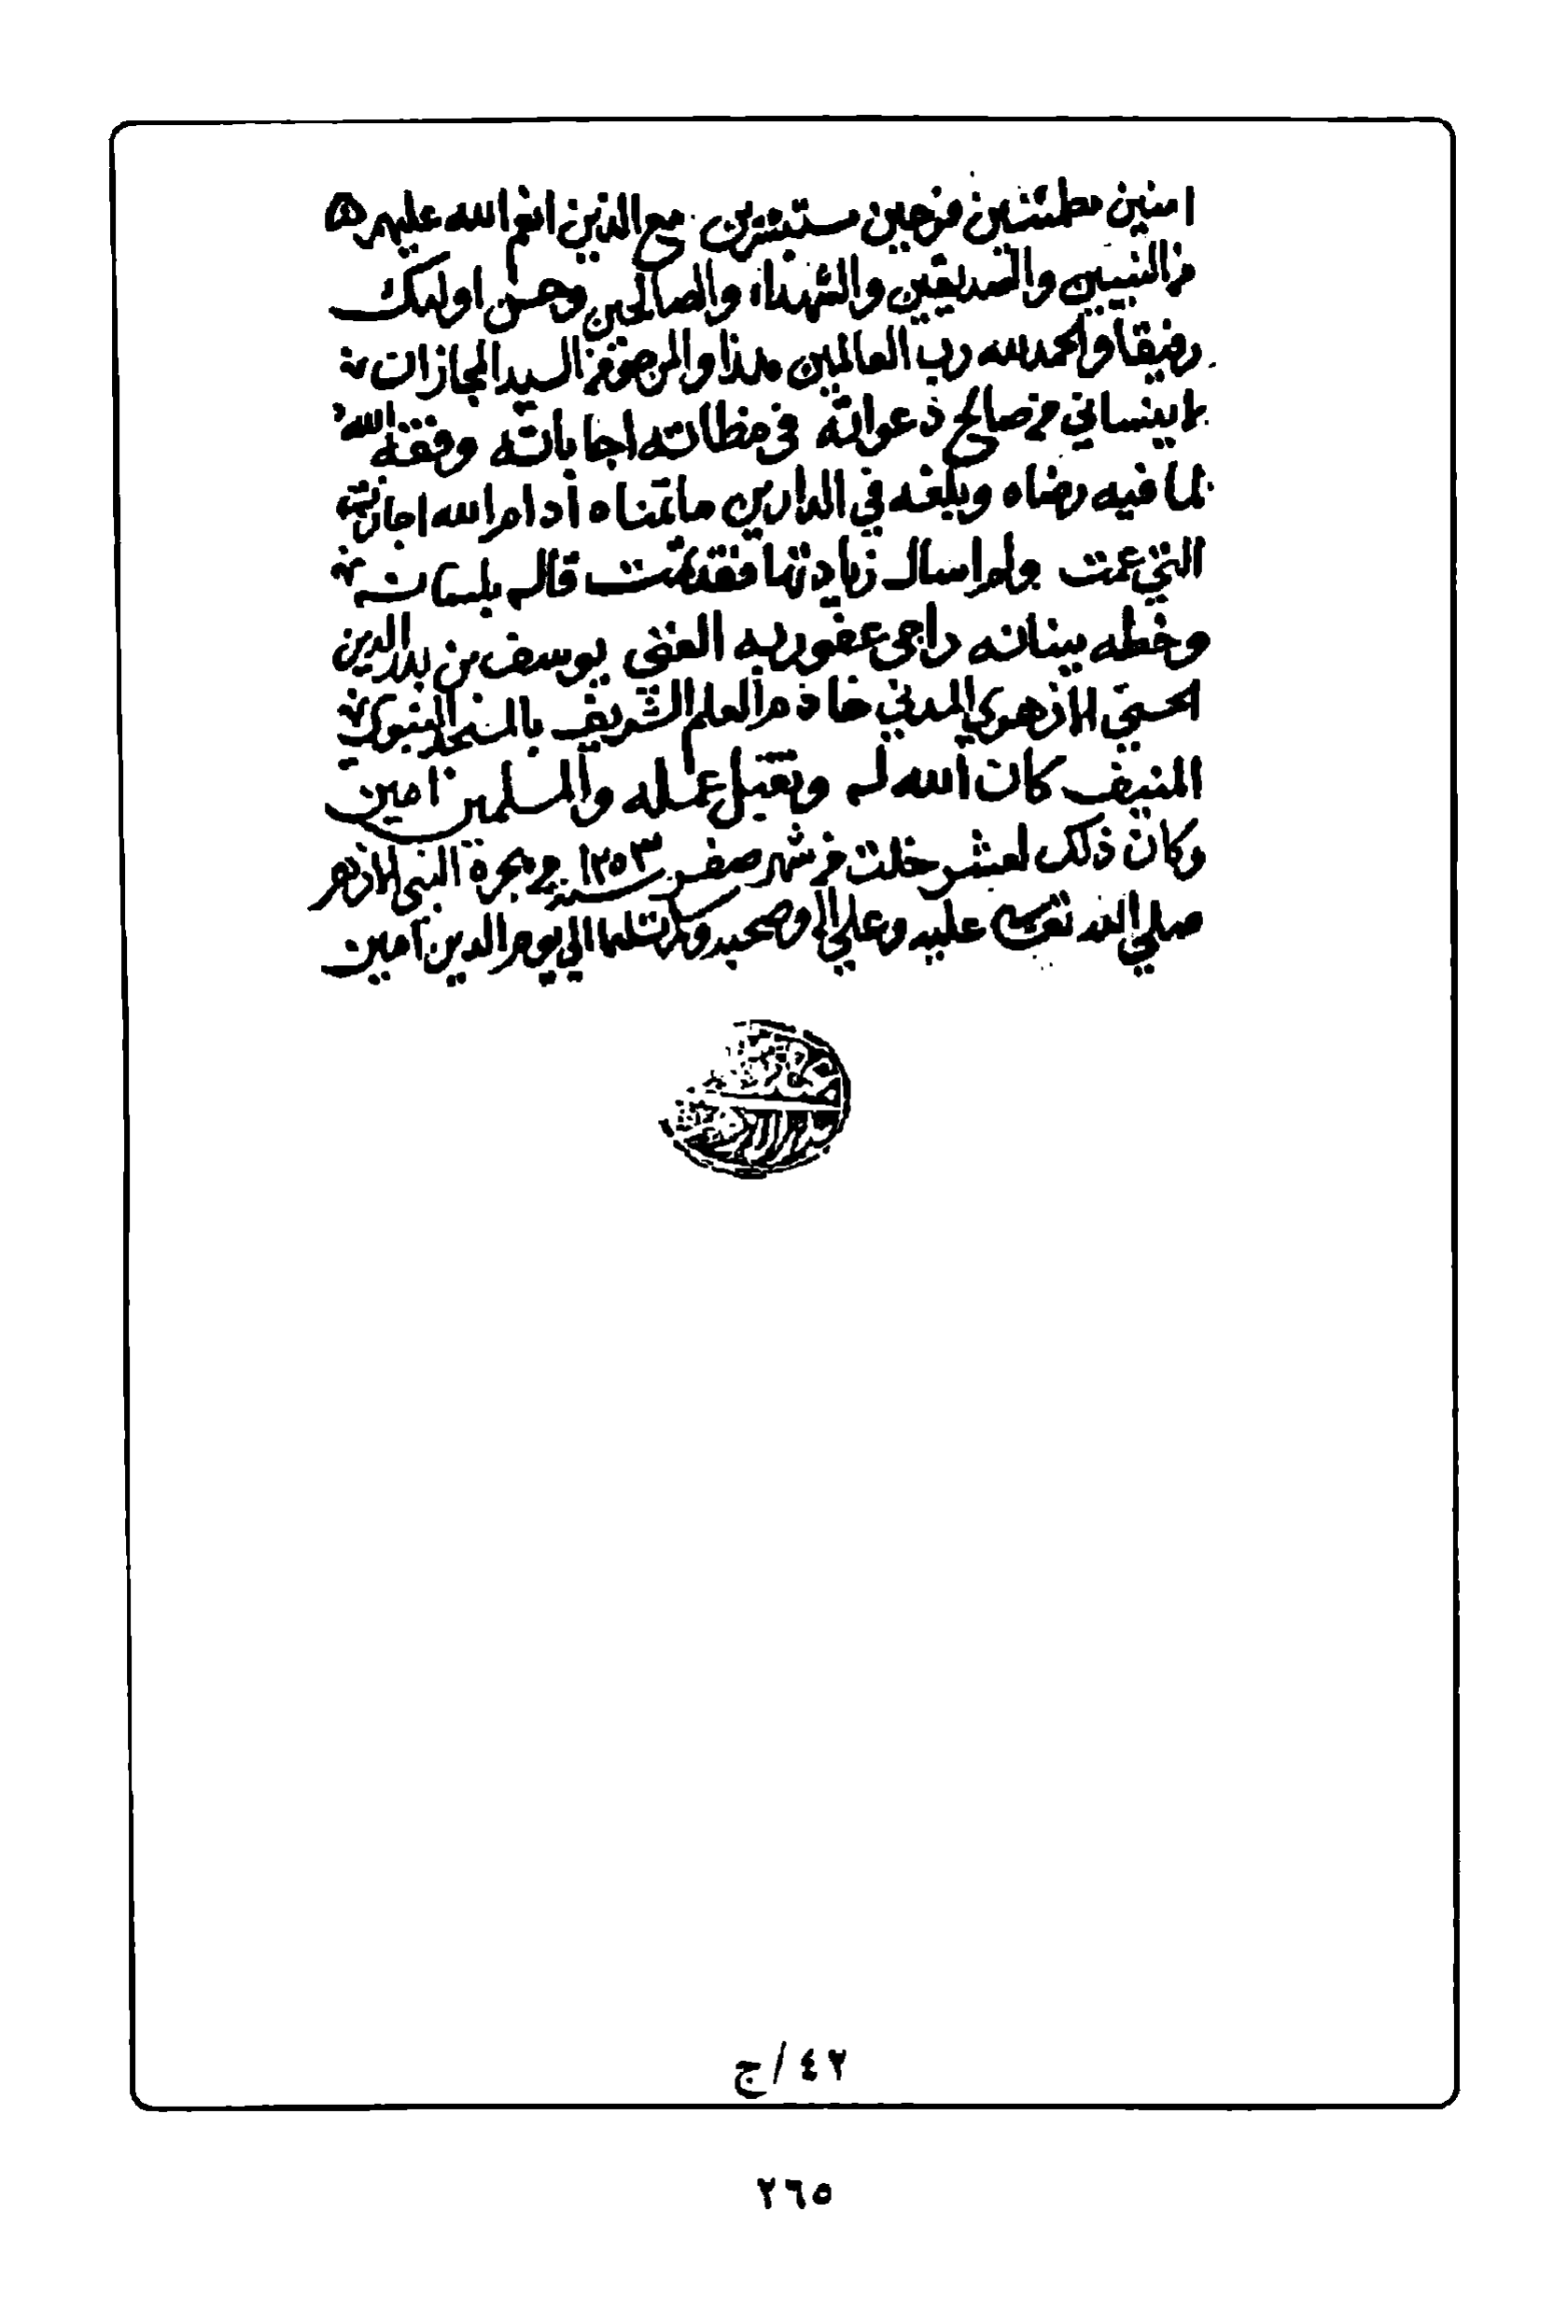 امنين مطمئنين فرحين مستبشرين مع الذين انعم الله عليهم
من النبيين والصديقين والشهداء والصالحين وحسن اوليك
رفيقا والحمد لله رب العالمين هذا والمرجو من السيد المجاز ان
لا ينساني من صالح دعواته في مظانه اجاباته وفقه الله
لما فيه رضاه وبلغه في الدارين ما تمناه أدام الله
التي عمت ولم اسال زيادتها فقد تمت قاله بلسانه
وخطه ببنانه راجى عفو ربه الغنى يوسف بن بدر الدين
الحسنى الازهري المدني خادم العلم الشريف بالمسجد النبوي
المنيف كان الله له وتقبل عمله والمسلمين امين
وكان ذلك لعشر خلت من شهر صفر سنة ١٢٥٣ من هجرة النبى الازهر
صلي الله تعالى عليه وعلي اله وصحبه الي يوم الدين آمين
٤٢/ج
٢٦٥